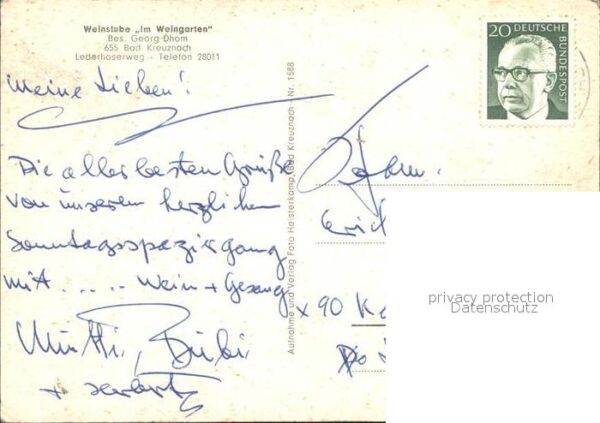 Weinstube „Im Weingarten"
Bes. Georg Dhom
655 Bad Kreuznach
Lederhoserweg - Telefon 28011
Meine Lieben!
Die allerbesten Grüße
von unserem herzlichen
Sonntagsspaziergang
mit ..... Wein + Gesang
Mutti, Bubi
+
Aufnahme und Verlag Foto Heisterkamp, Bad Kreuznach - Nr. 1588
20 DEUTSCHE
BUNDESPOST
Erich
x 90 K
privacy protection
Datenschutz